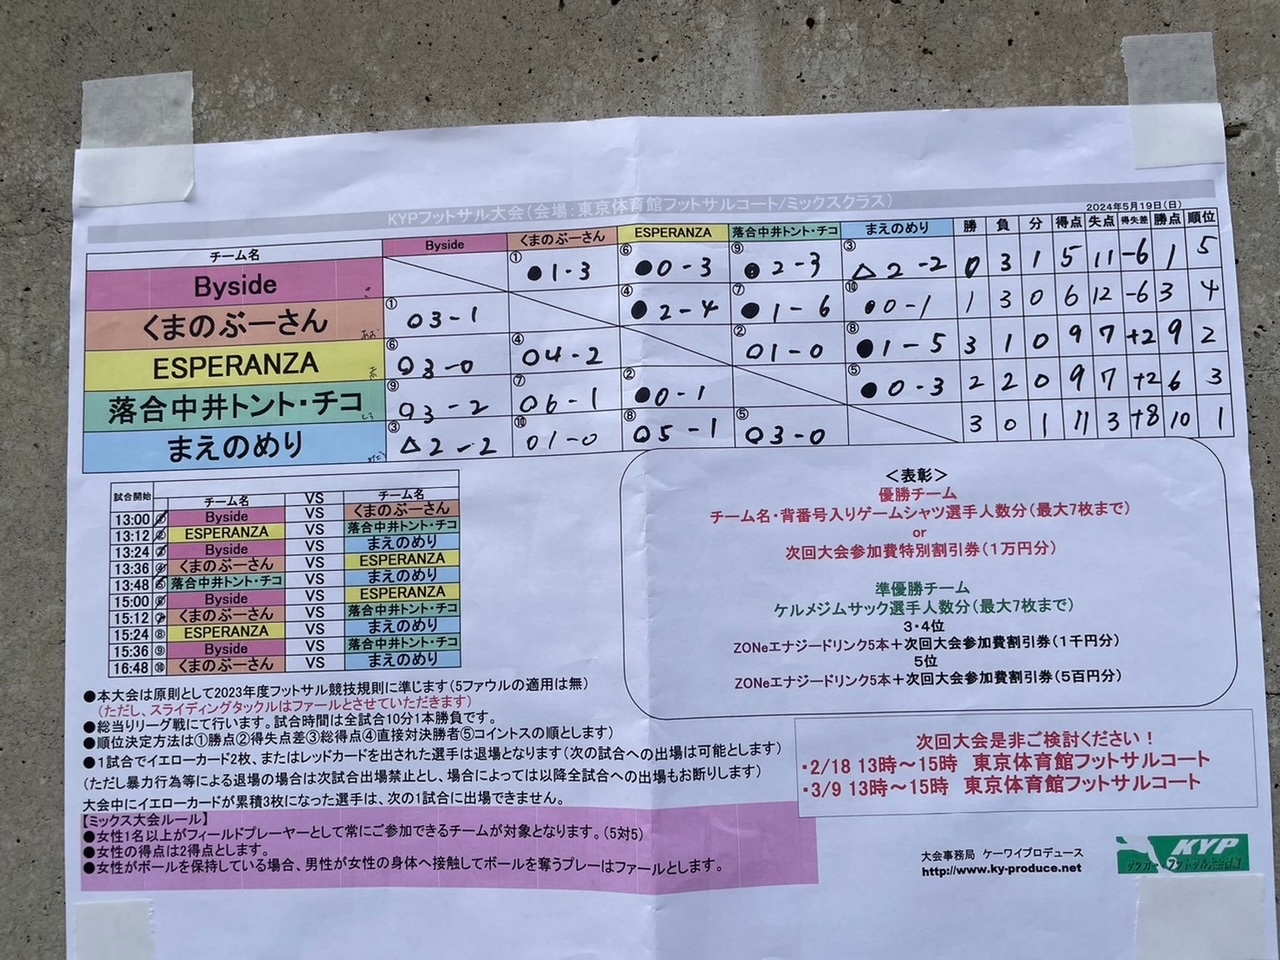 KYPフットサル大会(会場:東京体育館フットサルコート/ミックスクラス)
2024年5月19日(日)
チーム名 Byside くまのぶーさん ESPERANZA 落合中井トント・チコ まえのめり 勝 負 分 得点 失点 得失差 勝点 順位
Byside ①●1-3 ⑥●0-3 ⑨●2-3 ③△2-2 0 3 1 5 11 -6 1 5
くまのぶーさん ①○3-1 ④●2-4 ⑦●1-6 ⑩●0-1 1 3 0 6 12 -6 3 4
ESPERANZA ⑥○3-0 ④○4-2 ②○1-0 ⑧●1-5 3 1 0 9 7 +2 9 2
落合中井トント・チコ ⑨○3-2 ⑦○6-1 ②●0-1 ⑤●0-3 2 2 0 9 7 +2 6 3
まえのめり ③△2-2 ⑩○1-0 ⑧○5-1 ⑤○3-0 3 0 1 11 3 +8 10 1
試合開始 チーム名 VS チーム名
13:00 ① Byside VS くまのぶーさん
13:12 ② ESPERANZA VS 落合中井トント・チコ
13:24 ③ Byside VS まえのめり
13:36 ④ くまのぶーさん VS ESPERANZA
13:48 ⑤ 落合中井トント・チコ VS まえのめり
15:00 ⑥ Byside VS ESPERANZA
15:12 ⑦ くまのぶーさん VS 落合中井トント・チコ
15:24 ⑧ ESPERANZA VS まえのめり
15:36 ⑨ Byside VS 落合中井トント・チコ
16:48 ⑩ くまのぶーさん VS まえのめり
<表彰>
優勝チーム
チーム名・背番号入りゲームシャツ選手人数分(最大7枚まで)
or
次回大会参加費特別割引券(1万円分)
準優勝チーム
ケルメジムサック選手人数分(最大7枚まで)
3・4位
ZONeエナジードリンク5本+次回大会参加費割引券(1千円分)
5位
ZONeエナジードリンク5本+次回大会参加費割引券(5百円分)
●本大会は原則として2023年度フットサル競技規則に準じます(5ファウルの適用は無)
(ただし、スライディングタックルはファールとさせていただきます)
●総当りリーグ戦にて行います。試合時間は全試合10分1本勝負です。
●順位決定方法は①勝点②得失点差③総得点④直接対決勝者⑤コイントスの順とします)
●1試合でイエローカード2枚、またはレッドカードを出された選手は退場となります(次の試合への出場は可能とします)
(ただし暴力行為等による退場の場合は次試合出場禁止とし、場合によっては以降全試合への出場もお断りします)
大会中にイエローカードが累積3枚になった選手は、次の1試合に出場できません。
【ミックス大会ルール】
●女性1名以上がフィールドプレーヤーとして常にご参加できるチームが対象となります。(5対5)
●女性の得点は2得点とします。
●女性がボールを保持している場合、男性が女性の身体へ接触してボールを奪うプレーはファールとします。
次回大会是非ご検討ください!
・2/18 13時〜15時 東京体育館フットサルコート
・3/9 13時〜15時 東京体育館フットサルコート
大会事務局 ケーワイプロデュース
http://www.ky-produce.net
KYP